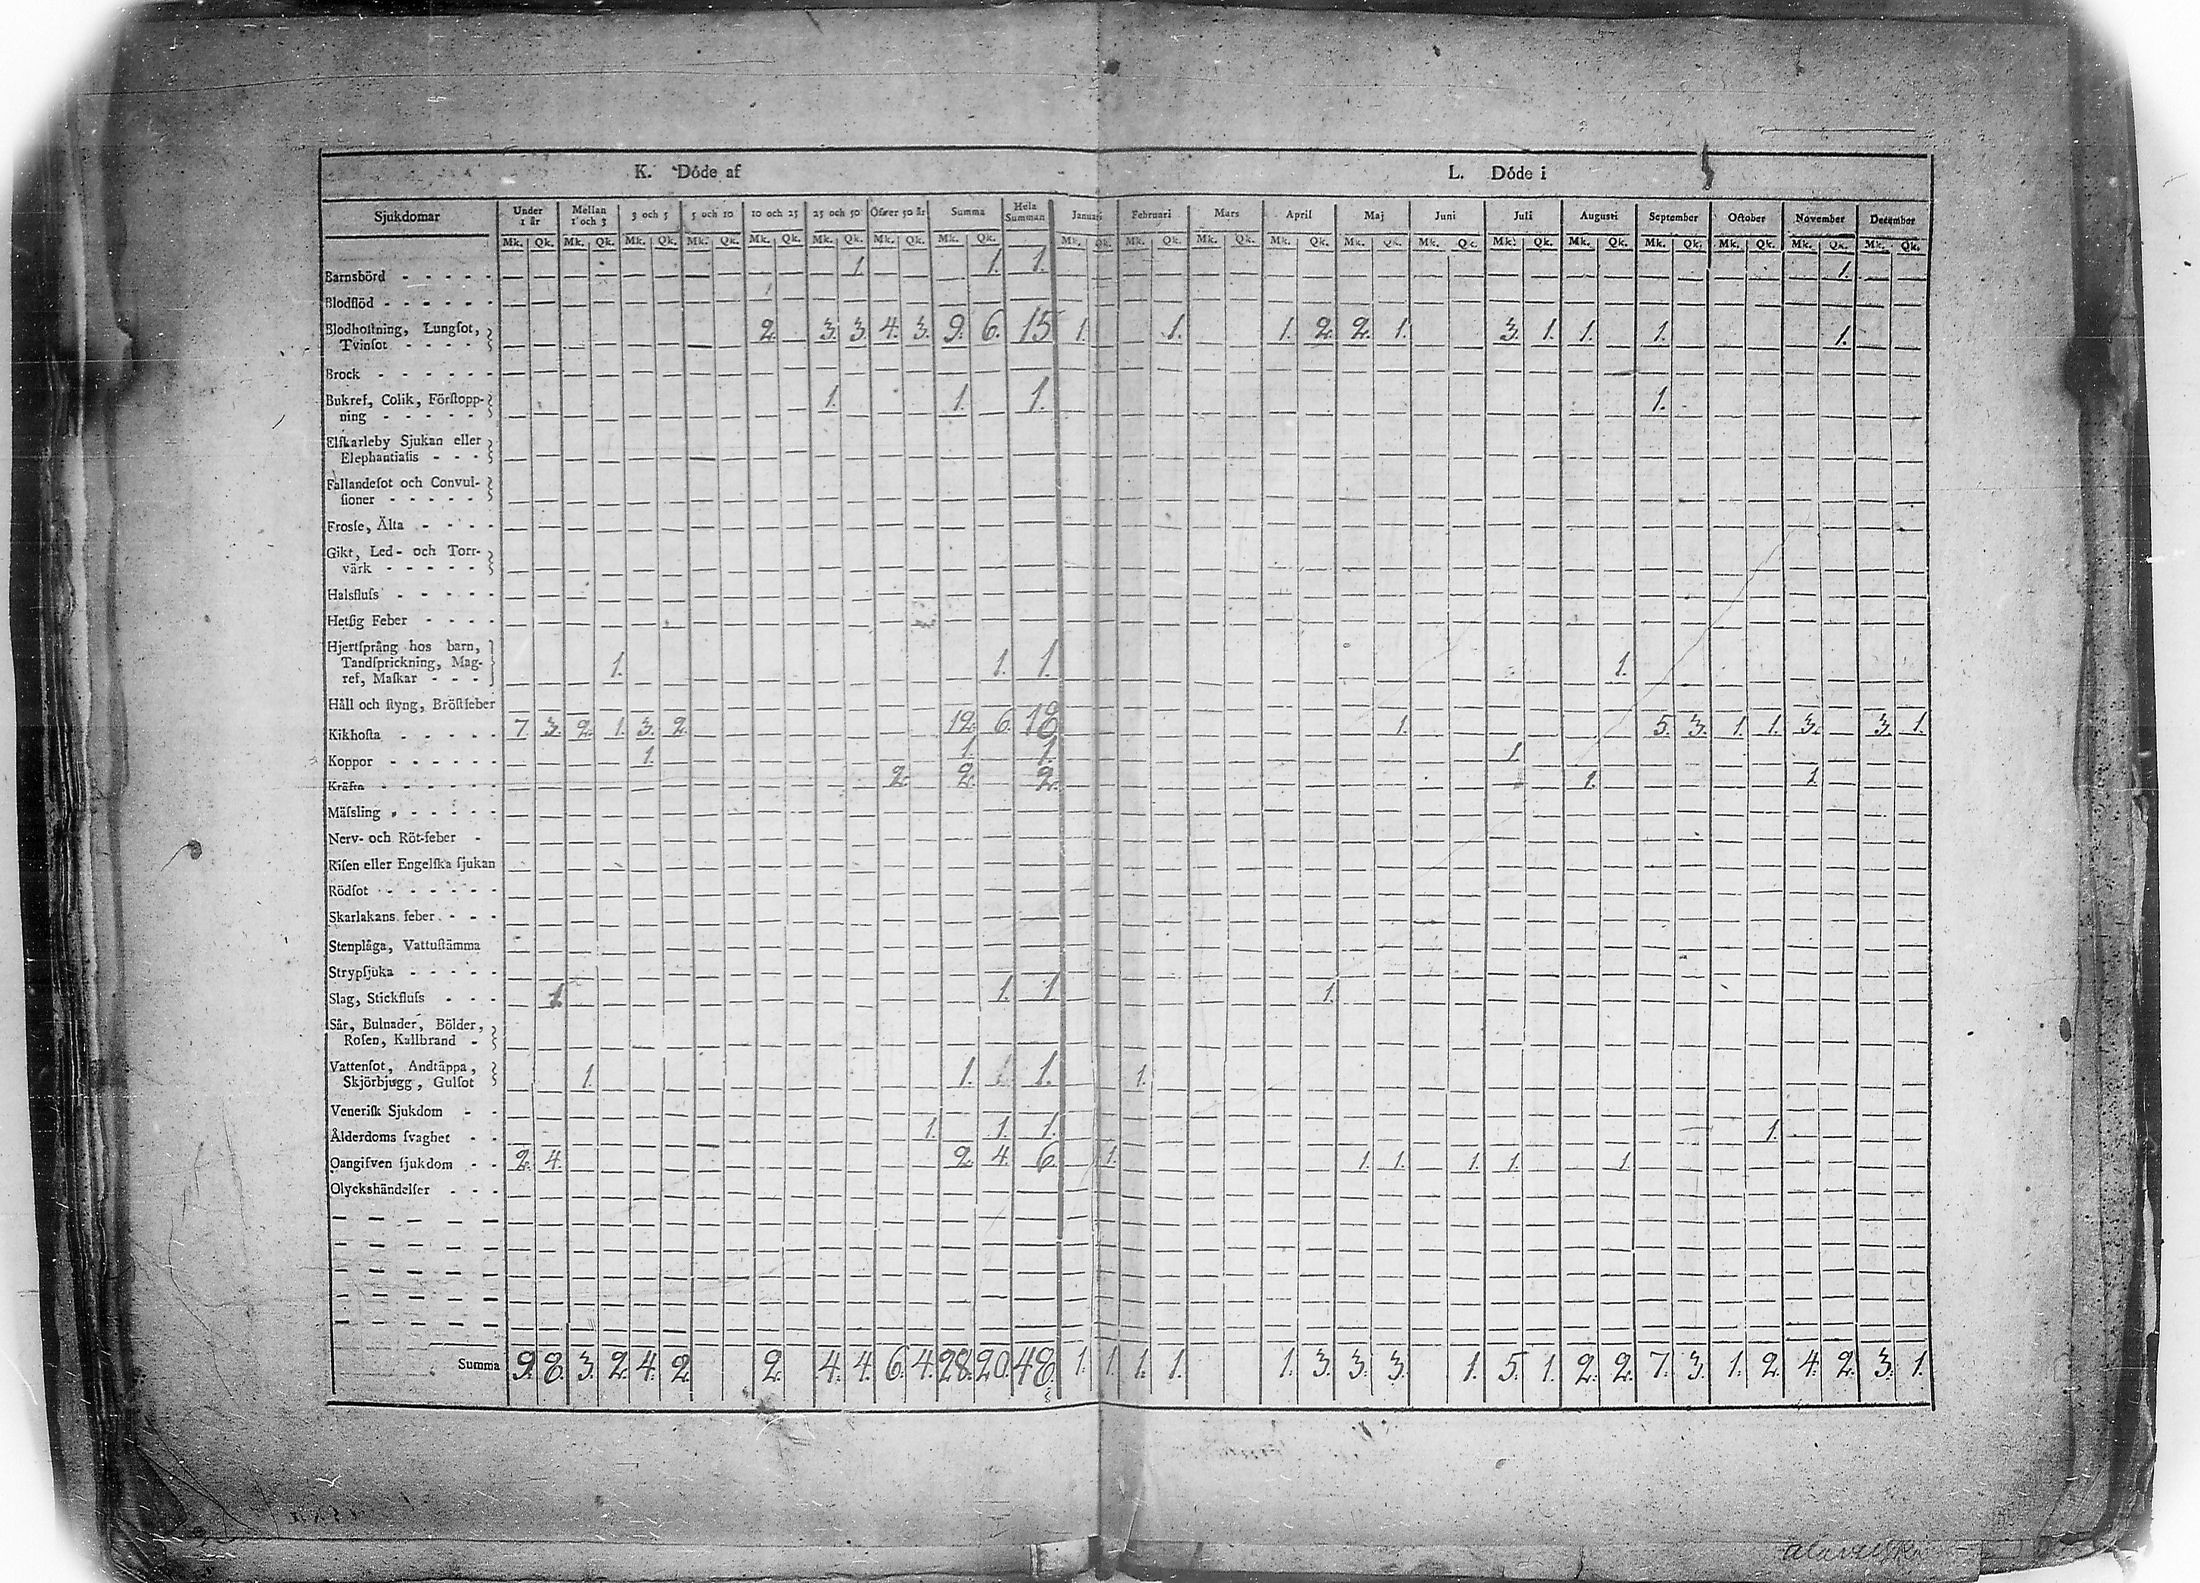 K. Döde af
L. Döde i
Sjukdomar | Under 1 år | Mellan 1 och 3 | 3 och 5 | 5 och 10 | 10 och 25 | 25 och 50 | Öfwer 50 år | Summa | Hela Summan | Januari | Februari | Mars | April | Maj | Juni | Juli | Augusti | September | October | November | December
Mk. Qk. Mk. Qk. Mk. Qk. Mk. Qk. Mk. Qk. Mk. Qk. Mk. Qk. Mk. Qk. Mk. Qk. Mk. Qk. Mk. Qk. Mk. Qk. Mk. Qk. Mk. Qk. Mk. Qk. Mk. Qk. Mk. Qk. Mk. Qk. Mk. Qk. Mk. Qk.
Barnsbörd - - - - - 1. 1. 1. 1.
Blodflöd - - - - - -
Blodhostning, Lungsot,
Tvinsot - - - - 2. 3. 3. 4. 3. 9. 6. 15 1. 1. 1. 2. 2. 1. 3. 1. 1. 1. 1.
Brock - - - - - -
Bukref, Colik, Förstopp-
ning - - - - - 1. 1. 1. 1.
Elskarleby Sjukan eller
Elephantiasis - - -
Fallandesot och Convul-
sioner - - - - -
Frosse, Älta - - - -
Gikt, Led- och Torr-
värk - - - - -
Halsfluss - - - - -
Hetsig Feber - - - -
Hjertsprång hos barn,
Tandsprickning, Mag-
ref, Maskar - - - 1. 1. 1. 1.
Håll och styng, Bröstfeber
Kikhosta - - - - - 7. 3. 2. 1. 3. 2. 12. 6. 18 1. 5. 3. 1. 1. 3. 3. 1.
Koppor - - - - - - 1. 1. 1. 1.
Kräfta - - - - - - 2. 2. 2. 1. 1.
Mässling - - - - - -
Nerv- och Röt-feber -
Risen eller Engelska sjukan
Rödsot - - - - - -
Skarlakans feber - - -
Stenplåga, Vattustämma
Strypsjuka - - - - -
Slag, Stickfluss - - - 1. 1. 1 1.
Sår, Bulnader, Bölder,
Rosen, Kallbrand -
Vattensot, Andtäppa,
Skjörbjugg, Gulsot 1. 1. 1. 1.
Venerisk Sjukdom - -
Ålderdoms svaghet - - 1. 1. 1. 1.
Oangifven sjukdom - - 2. 4. 2. 4. 6. 1. 1. 1. 1. 1. 1.
Olyckshändelser - - -
Summa 9. 8. 3. 2. 4. 2. 2. 4. 4. 6. 4. 28. 20. 48. 1. 1. 1. 1. 1. 3. 3. 3. 1. 5. 1. 2. 2. 7. 3. 1. 2. 4. 2. 3. 1.